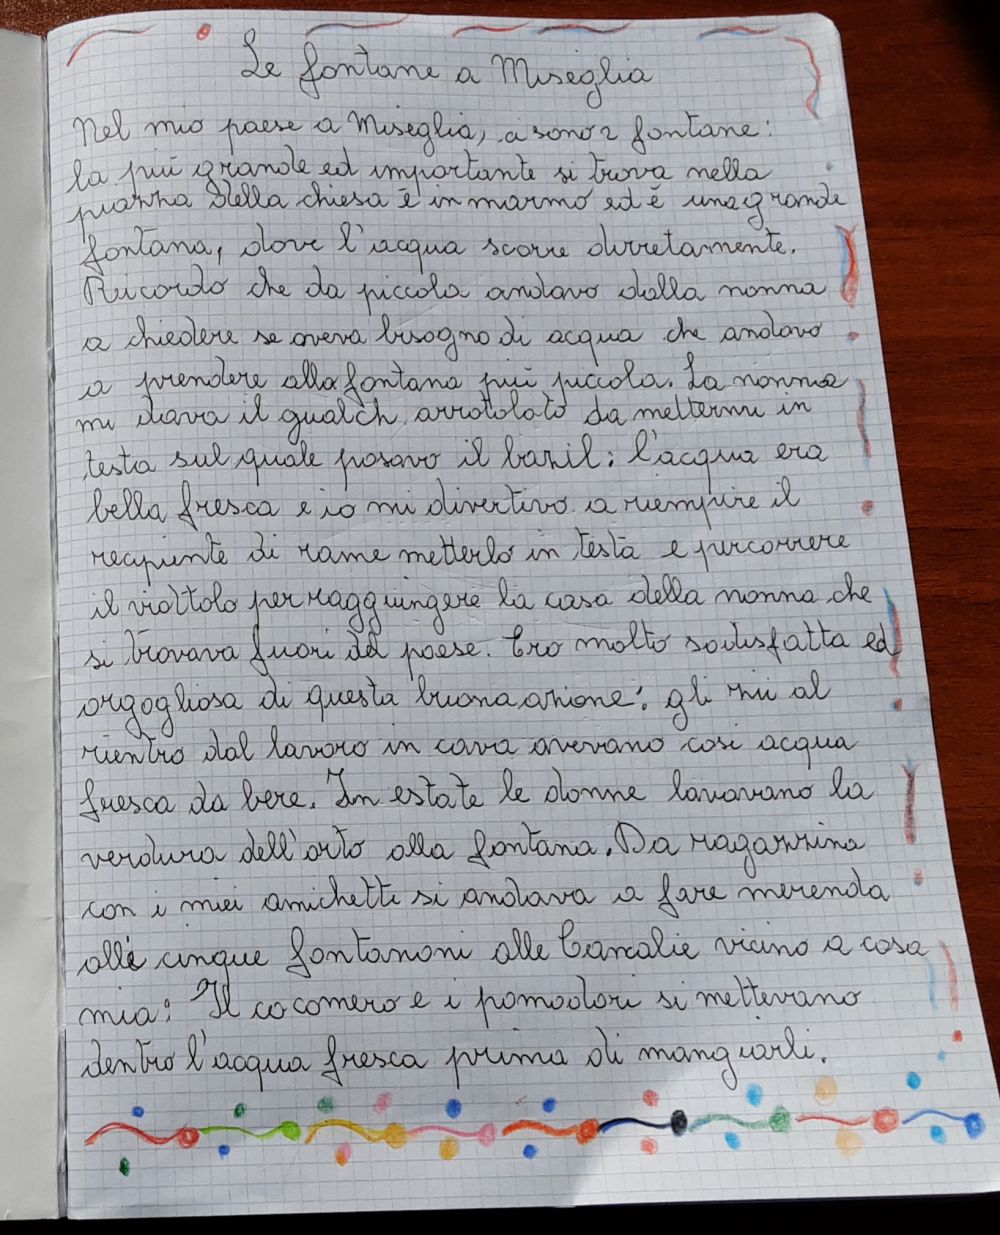 Le fontane a Miseglia
Nel mio paese a Miseglia, ci sono 2 fontane:
la più grande ed importante si trova nella
piazza della chiesa è in marmo ed è una grande
fontana, dove l'acqua scorre dirretamente.
Ricordo che da piccola andavo dalla nonna
a chiedere se aveva bisogno di acqua che andavo
a prendere alla fontana più piccola. La nonna
mi dava il gualch arrotolato da mettermi in
testa sul quale posavo il bazil: l'acqua era
bella fresca e io mi divertivo a riempire il
recipiente di rame metterlo in testa e percorrere
il viottolo per raggiungere la casa della nonna che
si trovava fuori del paese. Ero molto sodisfatta ed
orgogliosa di questa buona azione: gli zii al
rientro dal lavoro in cava avevano così acqua
fresca da bere. In estate le donne lavavano la
verdura dell'orto alla fontana. Da ragazzina
con i miei amichetti si andava a fare merenda
alle cinque fontanoni alle Canalie vicino a casa
mia: Il cocomero e i pomodori si mettevano
dentro l'acqua fresca prima di mangiarli.